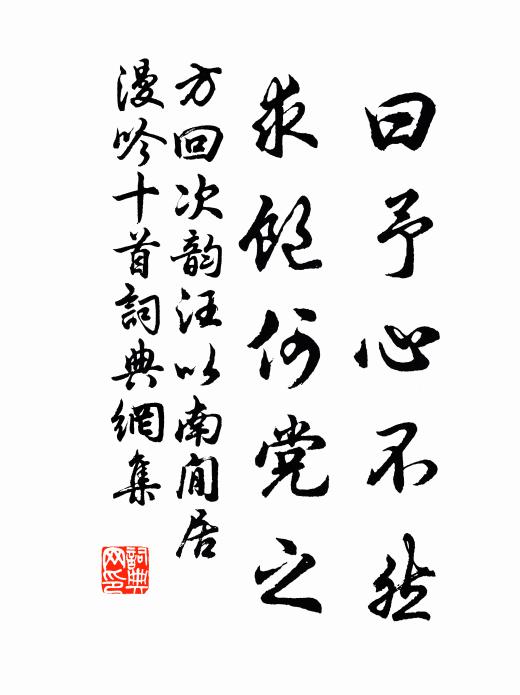 曰予心不然
求飽何党之
方回次韵汪以南閒居
漫吟十首詞典網集
詞典网印